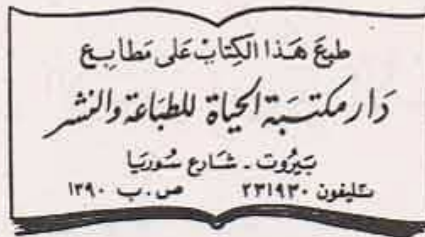 طبعَ هَذا الكِتابْ عَلى مَطابِع
دَار مكتبَة الحياة للطبَاعة والنشر
بَيرُوت - شارع سُوريَا
تليفون ٢٣١٩٣٠ ص.ب ١٣٩٠